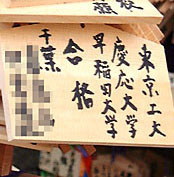 東京工大
慶応大学
早稲田大学
合格
千葉